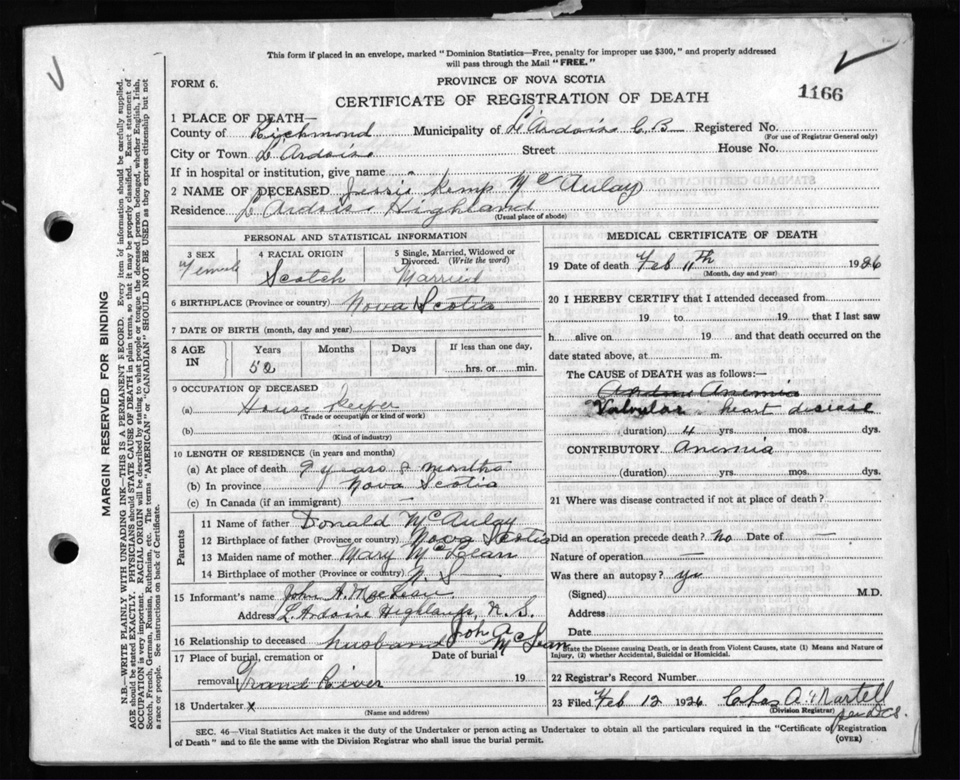 This form if placed in an envelope, marked "Dominion Statistics—Free, penalty for improper use $300," and properly addressed
will pass through the Mail "FREE."
FORM 6.
PROVINCE OF NOVA SCOTIA
CERTIFICATE OF REGISTRATION OF DEATH
1166
1 PLACE OF DEATH—
County of Richmond Municipality of L'Ardoise C B Registered No.
(For use of Registrar General only)
City or Town L'Ardoise Street House No.
If in hospital or institution, give name "
2 NAME OF DECEASED Jessie Kemp McAulay
Residence L'Ardoise Highland
(Usual place of abode)
PERSONAL AND STATISTICAL INFORMATION
3 SEX Female
4 RACIAL ORIGIN Scotch
5 Single, Married, Widowed or Divorced. (Write the word) Married
6 BIRTHPLACE (Province or country) Nova Scotia
7 DATE OF BIRTH (month, day and year)
8 AGE IN
Years Months Days If less than one day,
52 hrs. or min.
9 OCCUPATION OF DECEASED
(a) House Keeper
(Trade or occupation or kind of work)
(b)
(Kind of industry)
10 LENGTH OF RESIDENCE (in years and months)
(a) At place of death 9 years 8 months
(b) In province Nova Scotia
(c) In Canada (if an immigrant) —
Parents
11 Name of father Donald McAulay
12 Birthplace of father (Province or country) Nova Scotia
13 Maiden name of mother Mary McLean
14 Birthplace of mother (Province or country) N. S
15 Informant's name John A. MacLean
Address L'Ardoise Highlands, N. S.
16 Relationship to deceased husband John A McLean
17 Place of burial, cremation or Date of burial
removal Grand River 19
18 Undertaker x
(Name and address)
MEDICAL CERTIFICATE OF DEATH
19 Date of death Feb 11th 1926
(Month, day and year)
20 I HEREBY CERTIFY that I attended deceased from
19 to 19 that I last saw
h alive on 19 and that death occurred on the
date stated above, at m.
The CAUSE of DEATH was as follows:—
Anemia
Valvular heart disease
(duration) 4 yrs. mos. dys.
CONTRIBUTORY Anemia
(duration) yrs. mos. dys.
21 Where was disease contracted if not at place of death?
Did an operation precede death? No Date of —
Nature of operation —
Was there an autopsy?
(Signed) M.D.
Address
Date
State the Disease causing Death, or in death from Violent Causes, state (1) Means and Nature of
Injury, (2) whether Accidental, Suicidal or Homicidal.
22 Registrar's Record Number
23 Filed Feb 12 1926 Chas A. Martell
(Division Registrar)
(OVER)
SEC. 46—Vital Statistics Act makes it the duty of the Undertaker or person acting as Undertaker to obtain all the particulars required in the "Certificate of Registration
of Death" and to file the same with the Division Registrar who shall issue the burial permit.
MARGIN RESERVED FOR BINDING
N.B.—WRITE PLAINLY WITH UNFADING INK—THIS IS A PERMANENT RECORD. Every item of information should be carefully supplied.
AGE should be stated EXACTLY. PHYSICIANS should STATE CAUSE OF DEATH in plain terms, so that it may be properly classified. Exact statement of
OCCUPATION is very important. RACIAL ORIGIN will be described by stating to what people or tongue the deceased person belonged, whether English, Irish,
Scotch, French, German, Russian, Ruthenian, etc. The terms "AMERICAN" or "CANADIAN" SHOULD NOT BE USED as they express citizenship but not
a race or people. See instructions on back of Certificate.